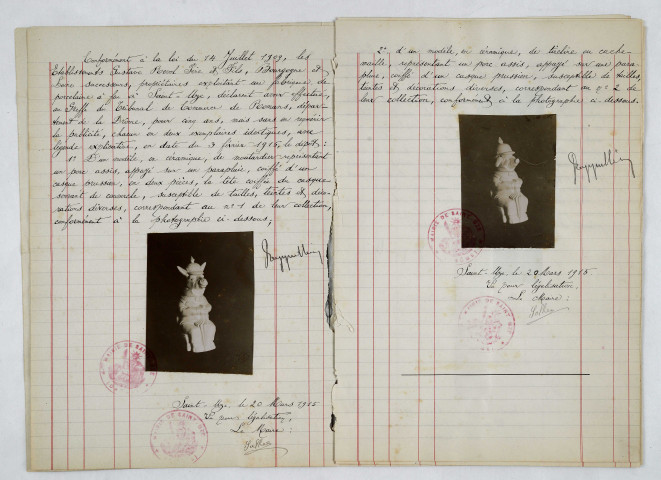 Conformément à la loi du 14 Juillet 1909, les
Etablissements Gustave Revol Père & Fils, Bourgogne &
successeurs, propriétaires exploitant une fabrique de
porcelaine à feu à Saint-Uze, déclarent avoir effectué,
au Greffe du Tribunal de Commerce de Romans, dépar-
tement de la Drôme, pour cinq ans, mais sans en requérir
la publicité, chacun en deux exemplaires identiques, avec
légende explicative, en date du 3 février 1915, le dépôt :
1° D'un modèle, en céramique, de moutardier représentant
un porc assis, appuyé sur un parapluie, coiffé d'un
casque prussien, en deux pièces, la tête coiffée du casque
servant de couvercle, susceptible de tailles, teintes & déco-
rations diverses, correspondant au n° 1 de leur collection,
conformément à la photographie ci-dessous,
MAIRIE DE SAINT-UZE
Saint-Uze, le 20 Mars 1915
Vu pour légalisation,
Le Maire :
MAIRIE DE SAINT-UZE
2° d'un modèle, en céramique, de tirelire ou cache-
représentant un porc assis, appuyé sur une para-
pluie, coiffé d'un casque prussien, susceptible de tailles,
teintes & décorations diverses, correspondant au n° 2 de
leur collection, conformément à la photographie ci-dessous.
MAIRIE DE SAINT-UZE
Saint-Uze, le 20 Mars 1915
Vu pour légalisation,
Le Maire :
MAIRIE DE SAINT-UZE